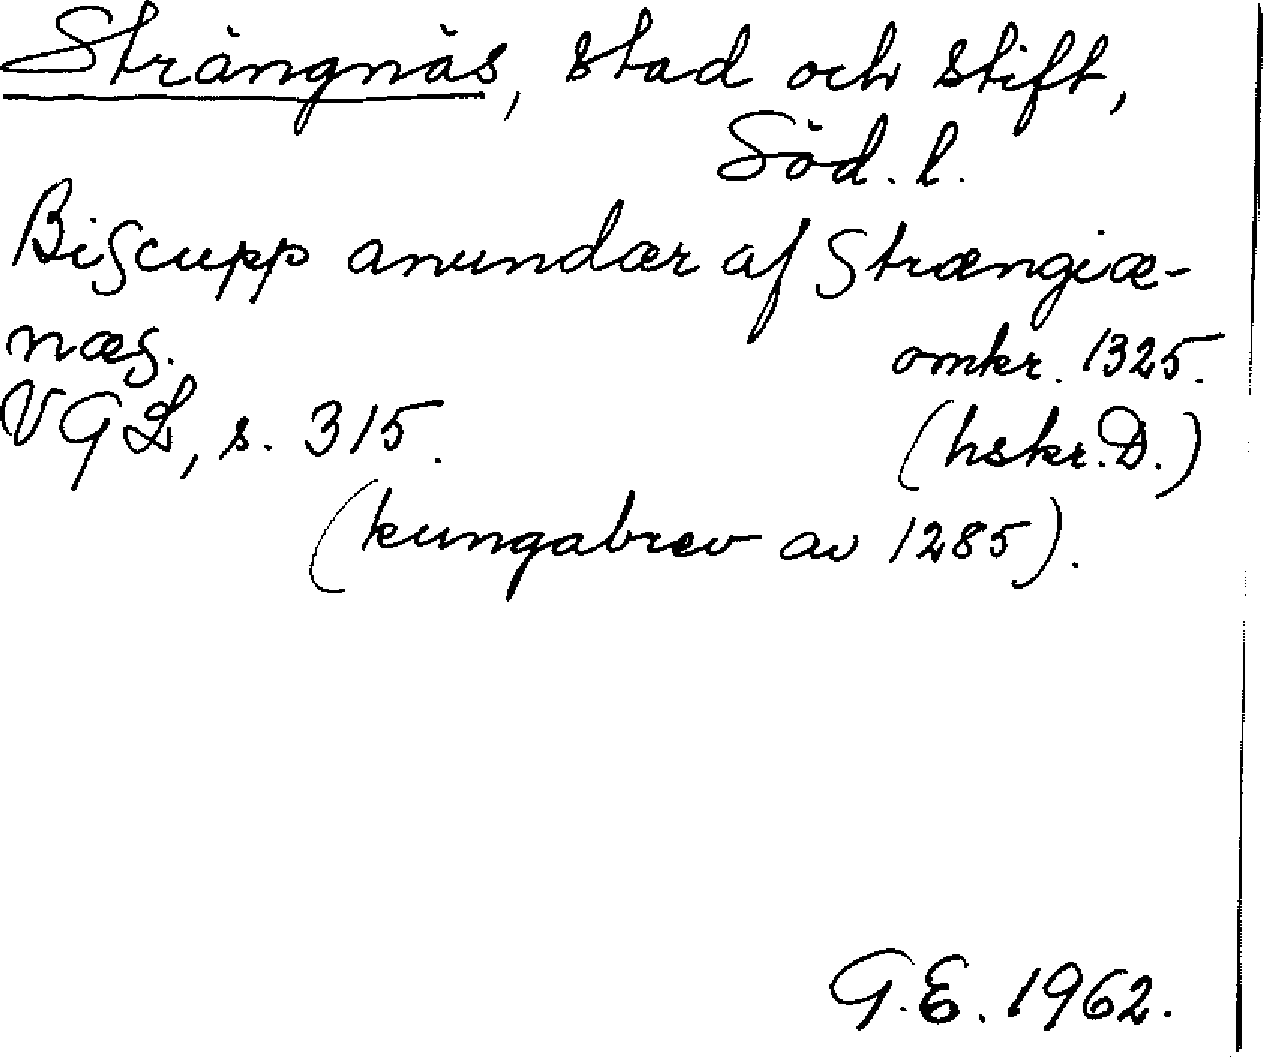 Strängnäs, stad och stift,
Söd. l.
Biscupp anundær af Strængiæ-
næs. omkr. 1325.
VGL, s. 315. (hskr. D.)
(kungabrev av 1285).
G.E. 1962.